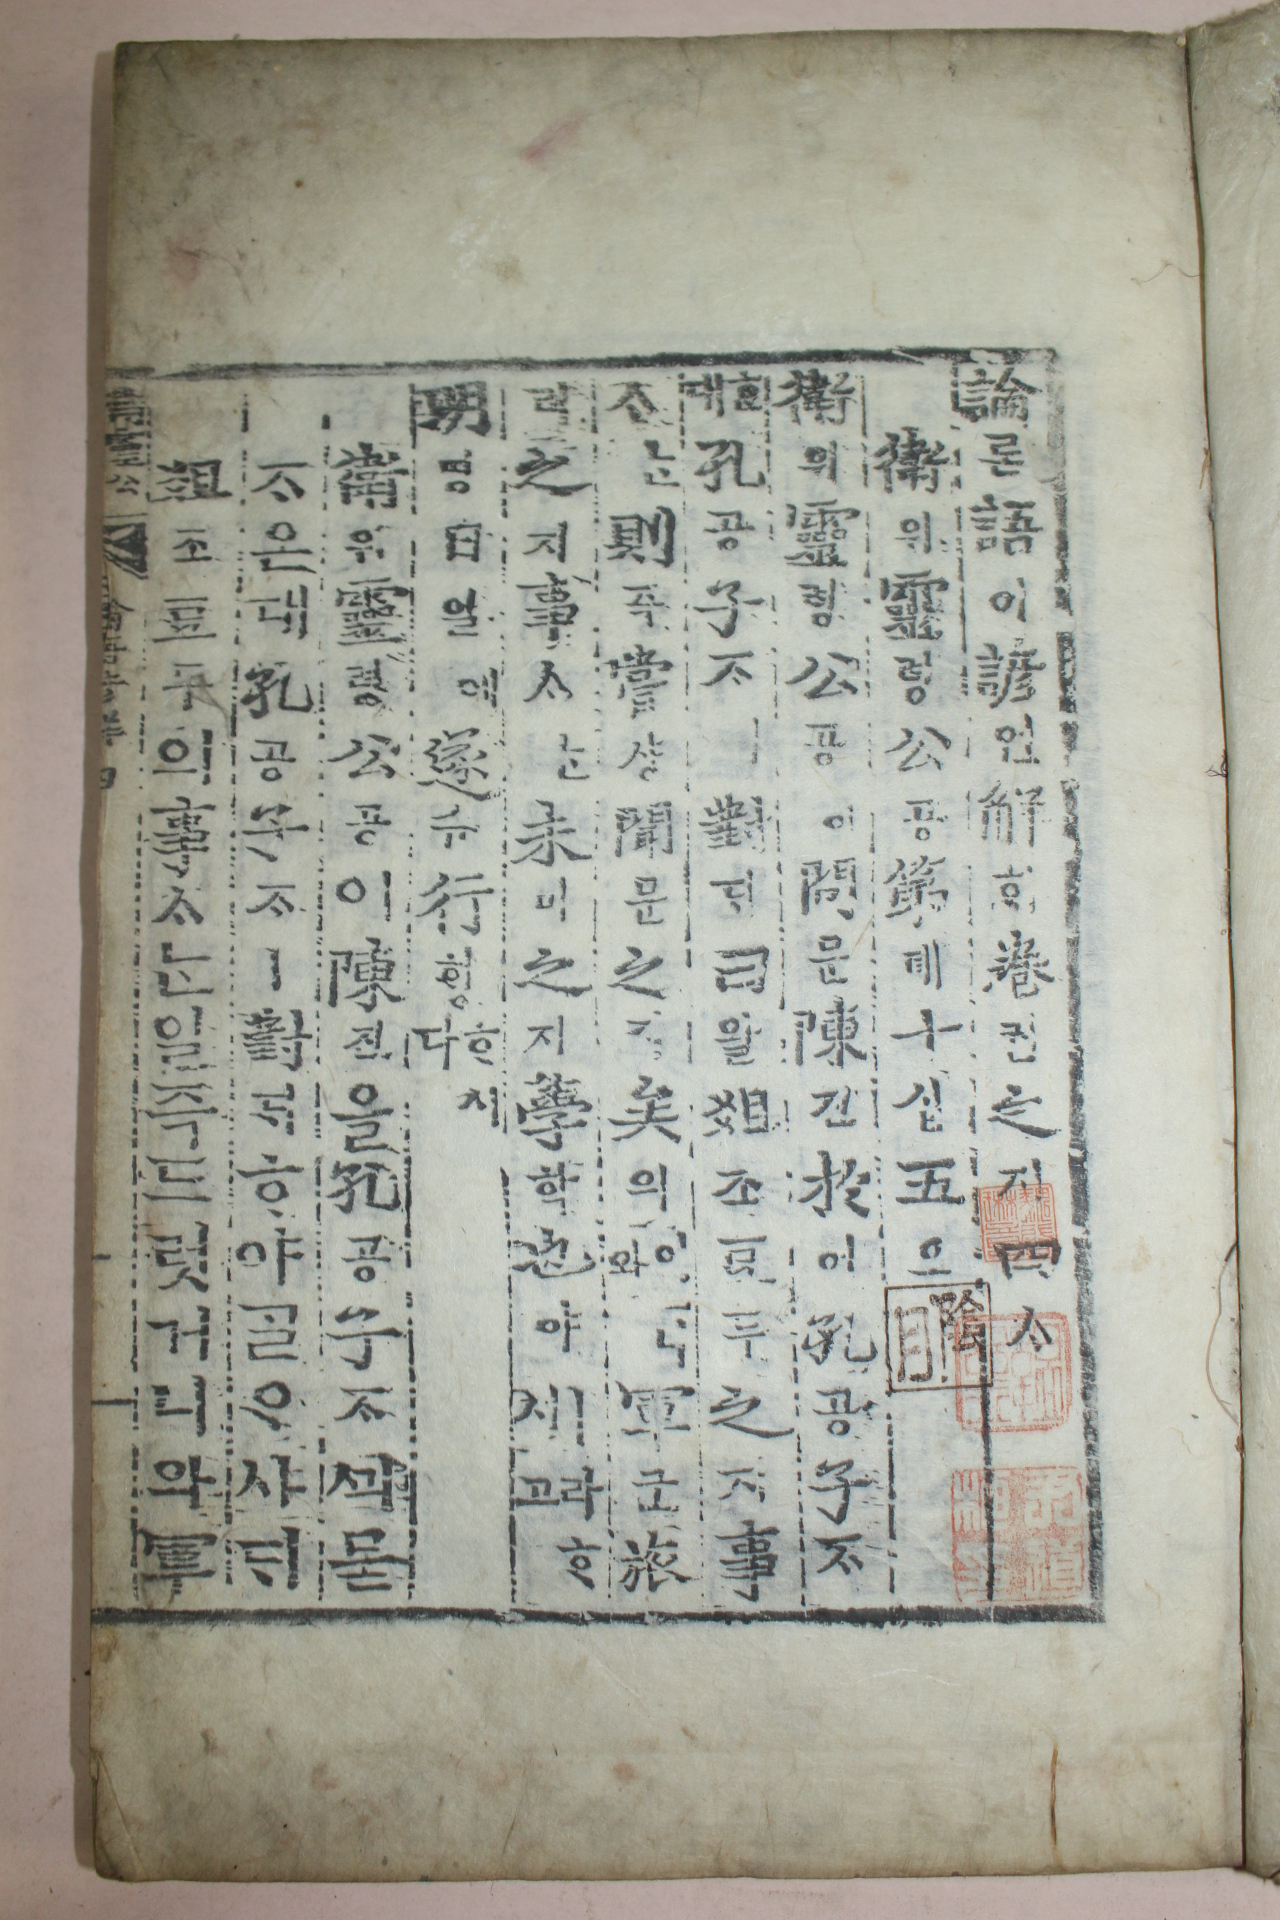 論론語어諺언解ᄒᆡ卷권之지四ᄉᆞ
衛위靈령公공第뎨十십五오
衛위靈령公공이問문陳딘於어孔공子ᄌᆞ
ᄒᆞᆫ대孔공子ᄌᆞㅣ對ᄃᆡ曰왈俎조豆두之지事
ᄉᆞᄂᆞᆫ則즉嘗샹聞문之지矣의어니와軍군旅
려之지事ᄉᆞᄂᆞᆫ未미之지學ᄒᆞᆨ也야ㅣ라ᄒᆞ시고
明명日일에遂슈行ᄒᆡᆼᄒᆞ시다
衛위靈령公공이陳진을孔공子ᄌᆞᄭᅴ묻
ᄌᆞ온대孔공子ᄌᆞㅣ對ᄃᆡᄒᆞ야ᄀᆞᆯᄋᆞ샤ᄃᆡ
俎조豆두의事ᄉᆞᄂᆞᆫ일즉드럿거니와軍